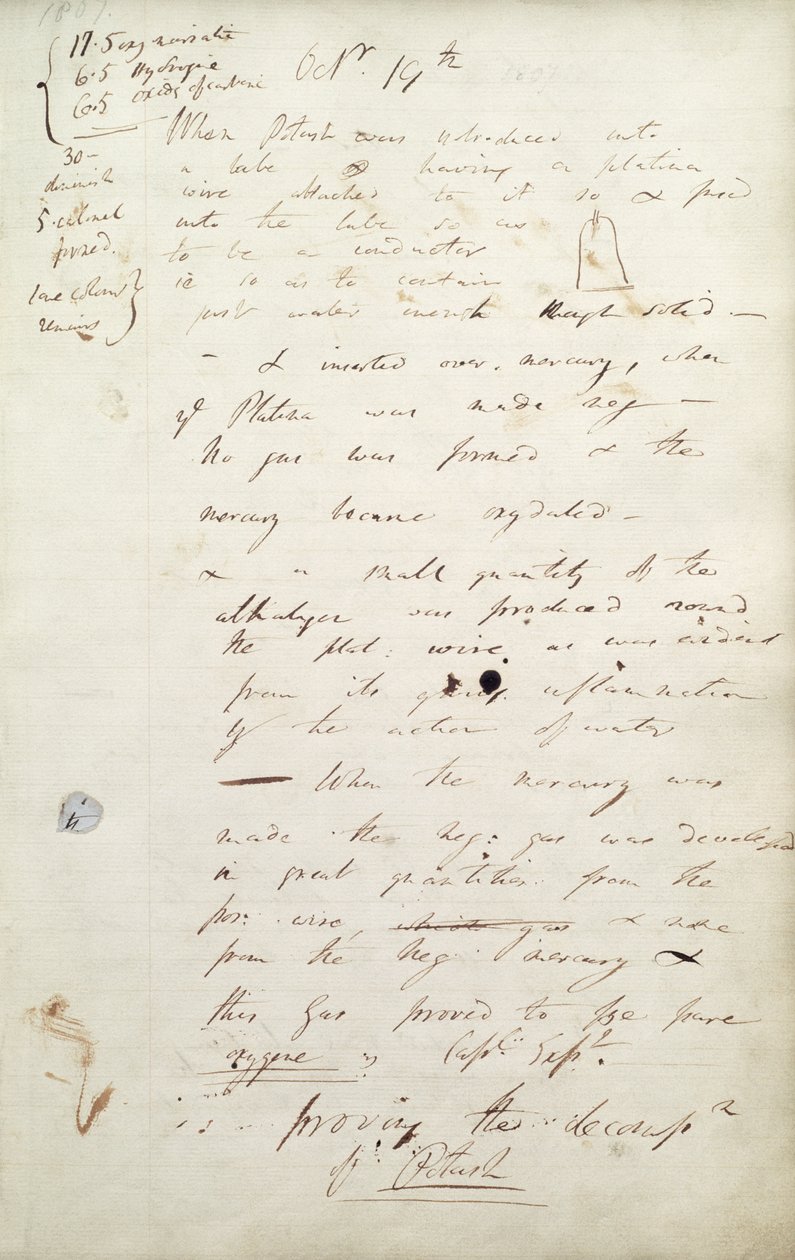 1807.
17.5 oxy muriatic
6.5 Hydrogene
6.5 oxide of carbone
30 -
diminish
5. calomel
formed.
remains
Octr. 19th
When Potash was introduced into
a tube having a platina
wire attached to it so & fused
into the tube so as
to be a conductor
ie so as to contain
just water enough though solid. —
— & inserted over. mercury, when
ye Platina was made neg —
No gas was formed & the
mercury became oxydated —
& a small quantity of the
alkaligen was produced round
the plat: wire as was evident
from its inflammation
by the action of water
— When the mercury was
made the neg: gas was developed
in great quantities from the
pos: wire, which gas & none
from the neg: mercury &
this gas proved to be pure
oxygene Capl. Expt.
proving the decompn
of Potash